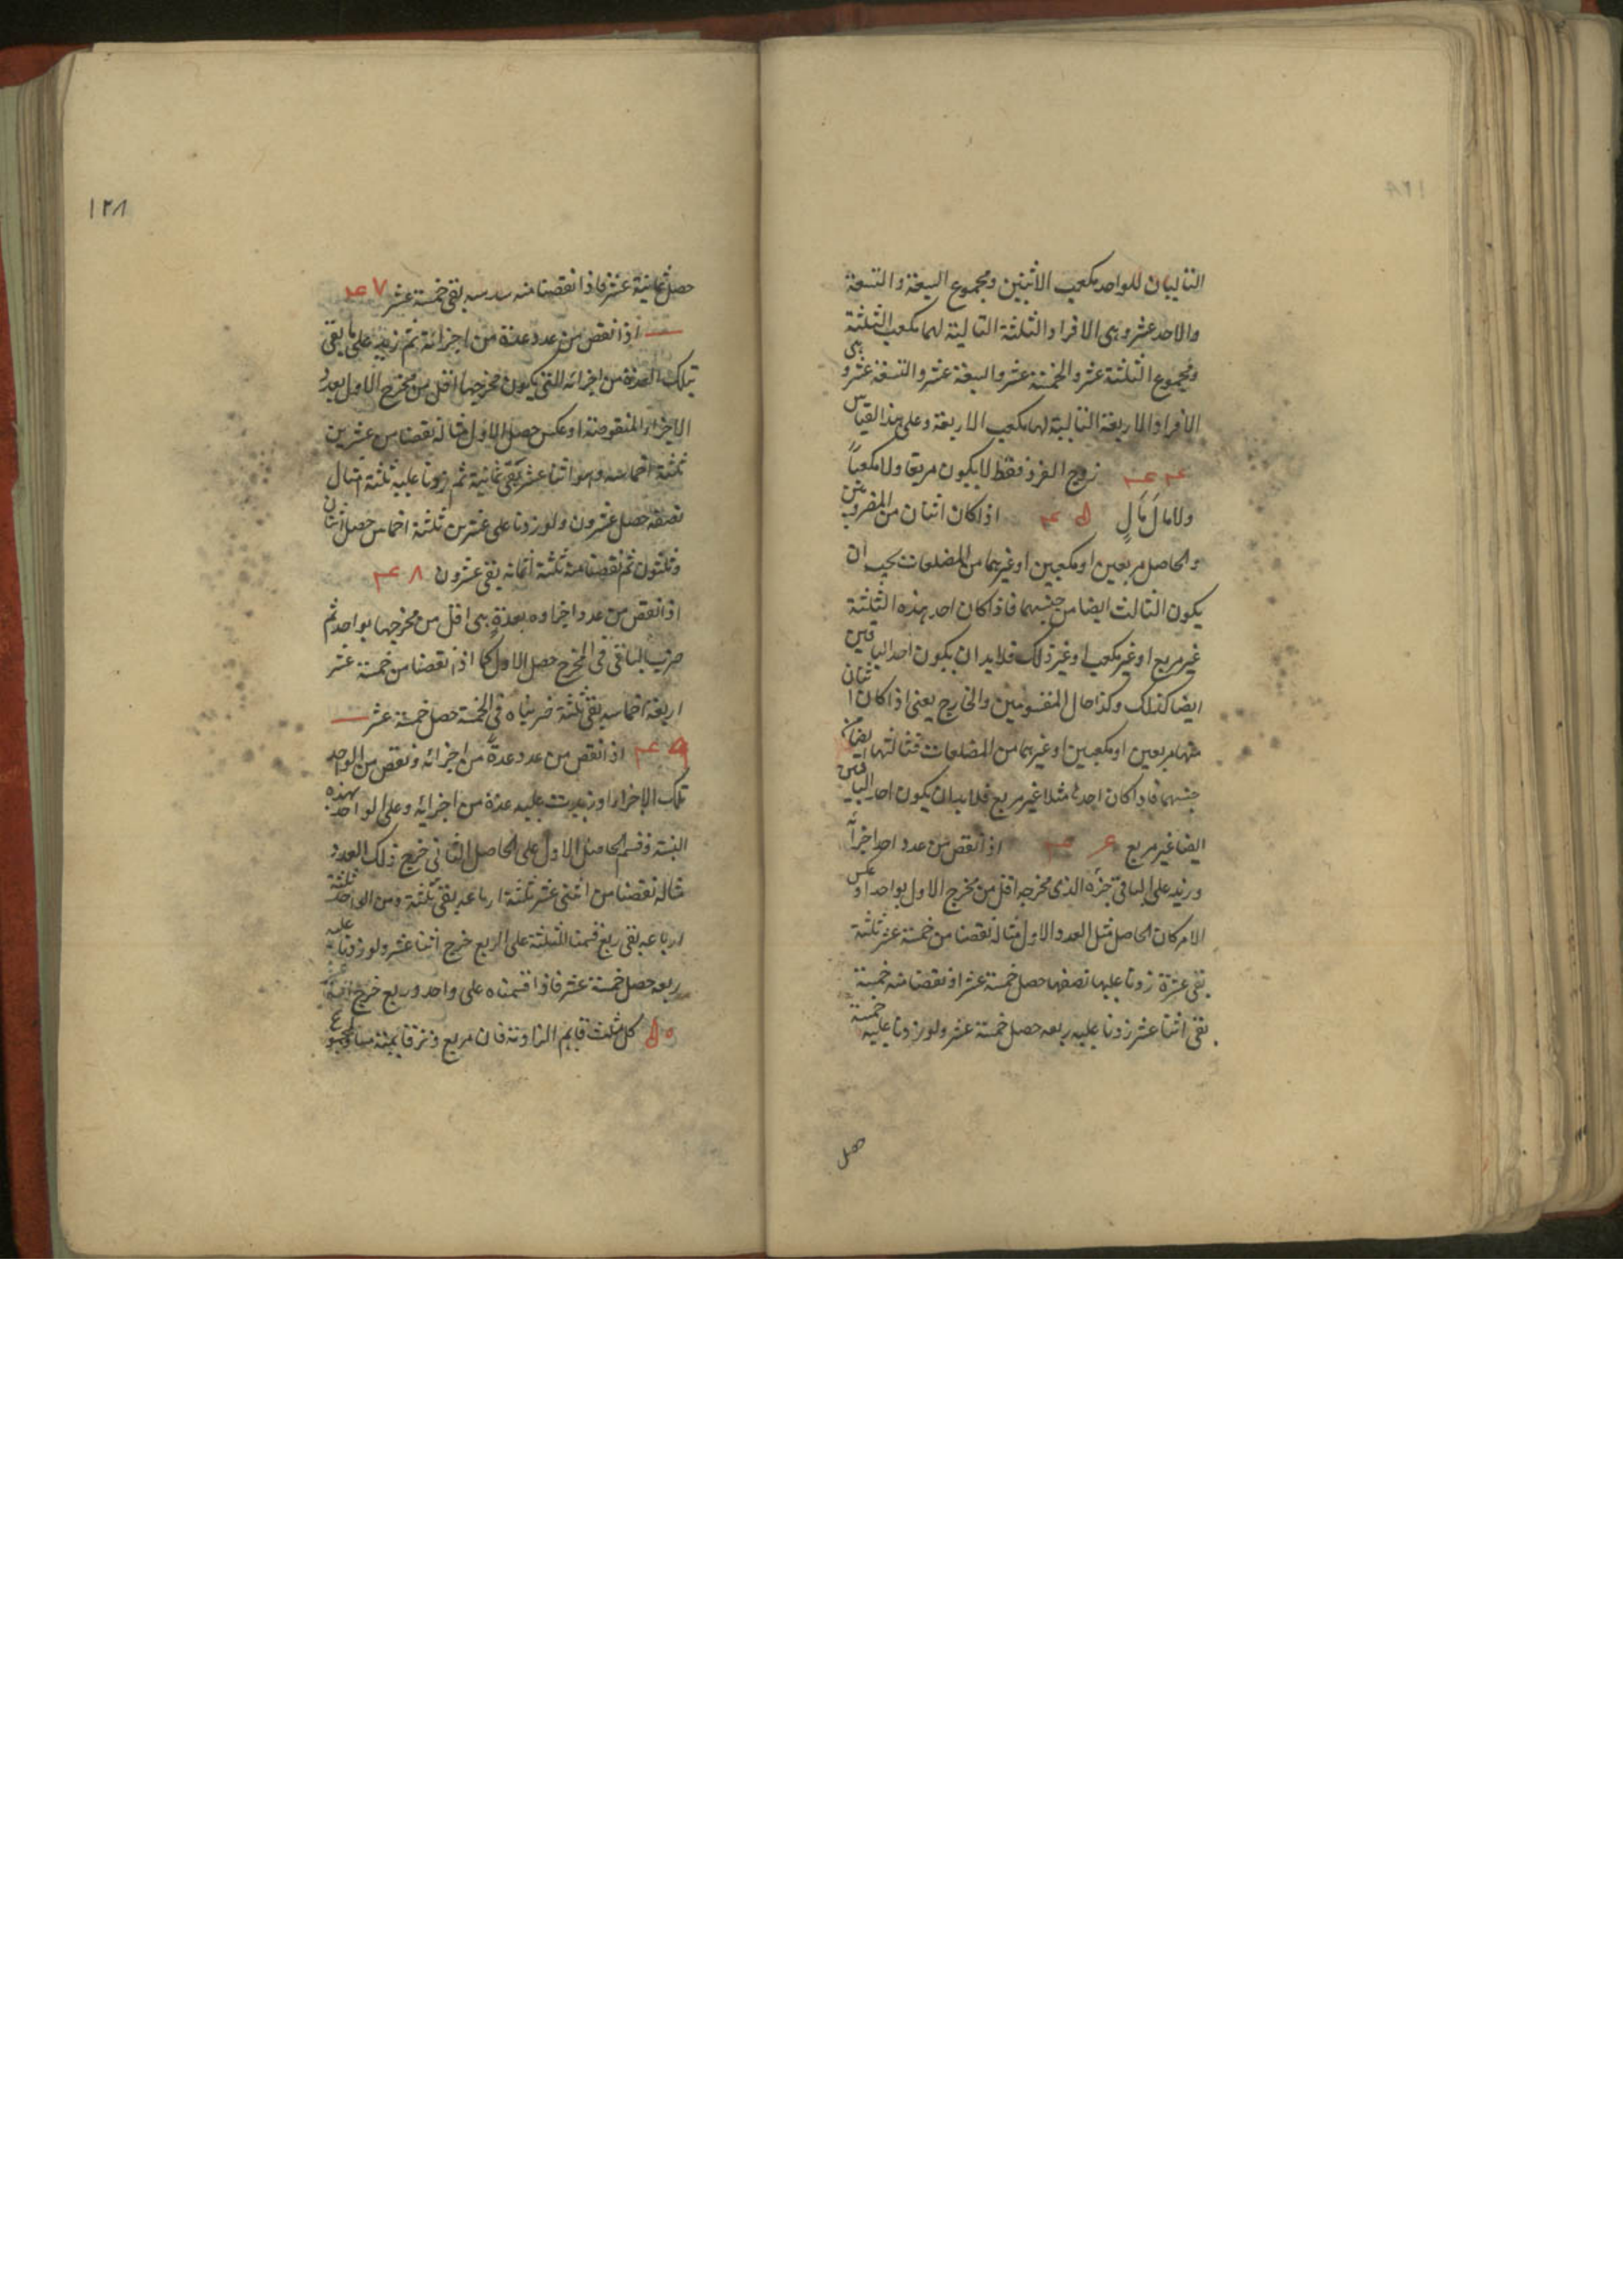 التاليان للواحد مكعب الاثنين ومجموع السبعة والتسعة
والاحد عشر وهى الافراد الثلثة التالية لهما مكعب الثلثة
ومجموع الثلثة عشر والخمسة عشر والسبعة عشر والتسعة عشر وهى
الافراد الاربعة التالية لها مكعب الاربعة وعلى هذا القياس
زوج الفرد فقط لا يكون مربعا ولا مكعباً
ولا مال مال اذا كان اثنان من المضروبين
والحاصل مربعين او مكعبين او غيرهما من المضلعات يجب ان
يكون الثالث ايضا من جنسهما فاذا كان احد هذه الثلثة
غير مربع او غير مكعب او غير ذلك فلابد ان يكون احد الباقين
ايضا كذلك وكذا حال المقسومين والخارج يعنى اذا كان اثنان
منها مربعين او مكعبين او غيرهما من المضلعات فثالثها ايضا من
جنسهما فاذا كان احدها مثلا غير مربع فلابد ان يكون احد الباقين
ايضا غير مربع اذا نقص من عدد احد اجزائه
وزيد على الباقى جزءه الذى مخرجه اقل من مخرج الاول بواحد او عكس
الامر كان الحاصل مثل العدد الاول مثاله نقصنا من خمسة عشر ثلثة
بقى عشرة زدنا عليها نصفها حصل خمسة عشر او نقصنا منه خمسة
بقى اثنا عشر زدنا عليه ربعه حصل خمسة عشر ولو زدنا عليه خمسة
حصل
١٢٨
حصل ثمانية عشر فاذا نقصنا منه سدسه بقى خمسة عشر ٧
اذا نقص من عدد عدة من اجزائه ثم زيد على ما بقى
تلك العدة من اجزائه التى يكون مخرجها اقل من مخرج الاول بعدد
الاجزاء المنقوصة او عكس حصل الاول مثاله نقصنا من عشرين
ثلثة اخماسه وهو اثنا عشر بقى ثمانية ثم زدنا عليه ثلثة امثال
نصفه حصل عشرون ولو زدنا على عشرين ثلثة اخماس حصل اثنان
وثلثون ثم نقصنا منه ثلثة اثمانه بقى عشرون ٨
اذا نقص من عدد اجزاوه بعدة هى اقل من مخرجها بواحد ثم
ضرب الباقى فى المخرج حصل الاول كما اذا نقصنا من خمسة عشر
اربعة اخماسه بقى ثلثة ضربناه فى الخمسة حصل خمسة عشر
اذا نقص من عدد عدة من اجزائه ونقص من الواحد
تلك الاجزاء او زيدت عليه عدة من اجزائه وعلى الواحد بهذه
النسبة وقسم الحاصل الاول على الحاصل الثانى خرج ذلك العدد
مثاله نقصنا من اثنى عشر ثلثة ارباعه بقى ثلثة ومن الواحد ثلثة
ارباعه بقى ربع قسمنا الثلثة على الربع خرج اثنا عشر ولو زدنا عليه
ربعه حصل خمسة عشر فاذا قسمناه على واحد وربع خرج
كل مثلث قايم الزاوية فان مربع وتر قايمته مساو لمجموع